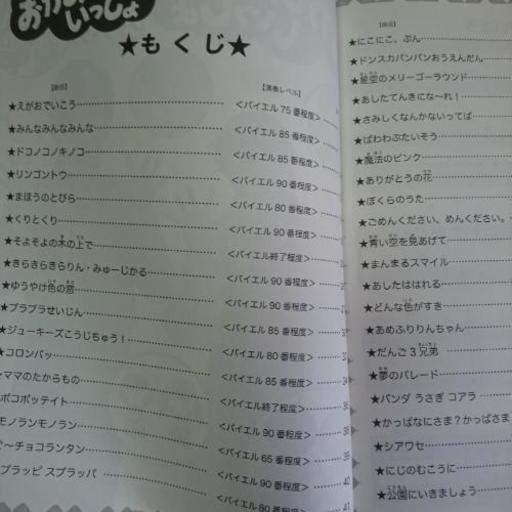 おかあさんといっしょ
★もくじ★
【曲名】 【演奏レベル】
★えがおでいこう <バイエル 75 番程度>
★みんなみんなみんな <バイエル 85 番程度>
★ドコノコノキノコ <バイエル 85 番程度>
★リンゴントウ <バイエル 90 番程度>
★まほうのとびら <バイエル 80 番程度>
★くりとくり <バイエル 90 番程度>
★そよそよの木の上で <バイエル終了程度>
★きらきらきらりん・みゅーじかる <バイエル 90 番程度>
★ゆうやけ色の窓 <バイエル 90 番程度>
★プラプラせいじん <バイエル 85 番程度>
★ジューキーズこうじちゅう! <バイエル 80 番程度>
★コロンパッ <バイエル 85 番程度>
★ママのたからもの <バイエル終了程度>
ポコポッテイト <バイエル 90 番程度> 36
モノランモノラン <バイエル 65 番程度> 38
〜チョコランタン <バイエル 90 番程度> 40
プラッピ スプラッパ <バイエル 80 番程度> 41
【曲名】
★にこにこ、ぷん
★ドンスカパンパンおうえんだん
★星空のメリーゴーラウンド
★あしたてんきにな〜れ!
★さみしくなんかないってば
★ぱわわぷたいそう
★魔法のピンク
★ありがとうの花
★ぼくらのうた
★ごめんください、めんください。
★青い空を見あげて
★まんまるスマイル
★あしたははれる
★どんな色がすき
★あめふりりんちゃん
★だんご3兄弟
★夢のパレード
★パンダ うさぎ コアラ
★かっぱなにさま?かっぱさま
★シアワセ
★にじのむこうに
★公園にいきましょう